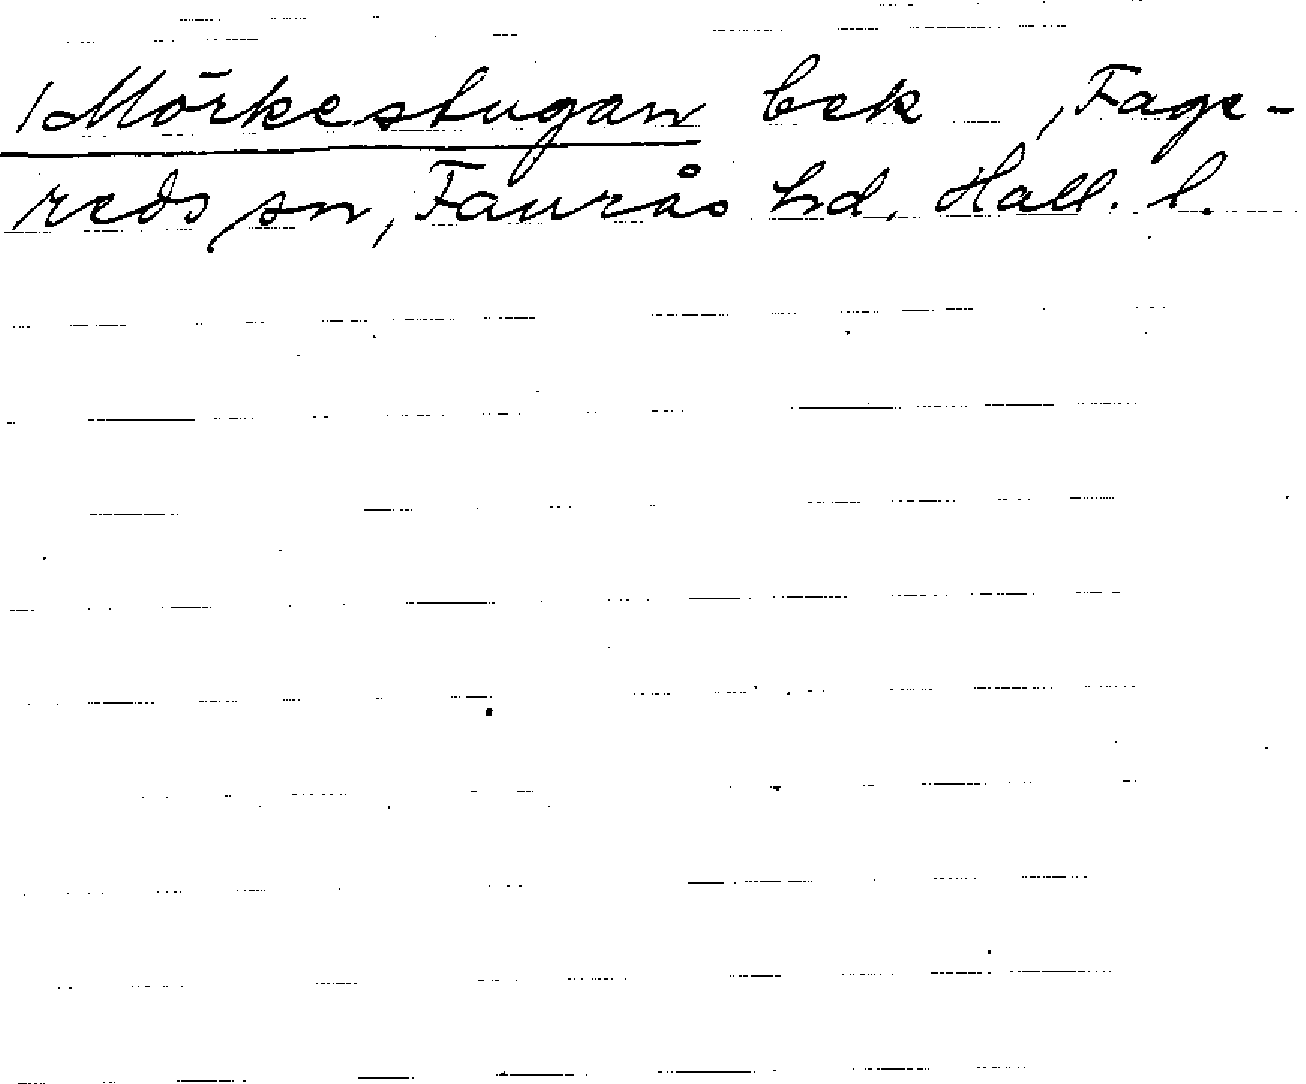 /Mörkestugan bek , Fage-
reds sn, Faurås hd. Hall. l.